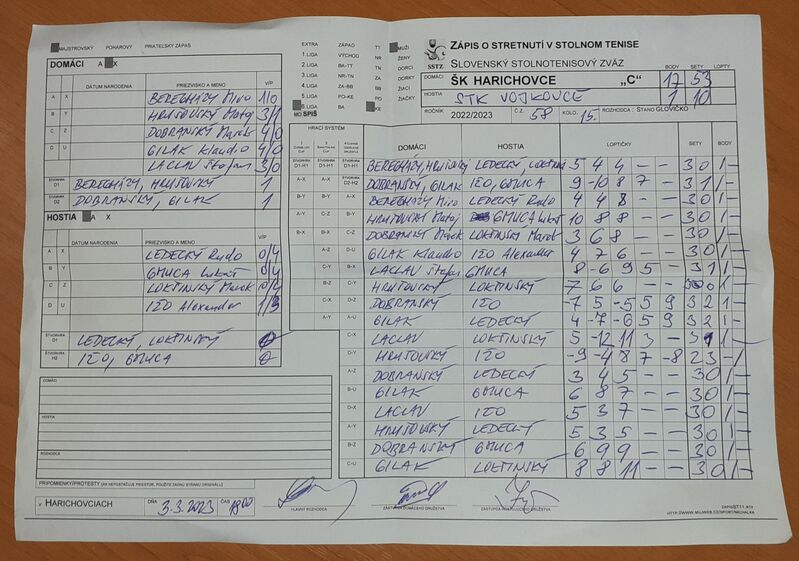 MAJSTROVSKÝ POHÁROVÝ PRIATEĽSKÝ ZÁPAS
DOMÁCI A X
DÁTUM NARODENIA PRIEZVISKO A MENO V/P
A X BEREGHÁZY Miro 1/0
B Y HRUŠOVSKÝ Matej 3/1
C Z DOBRANSKÝ Marek 4/0
D U GILAK Klaudio 4/0
LACLAV Štefan 3/0
ŠTVORHRA D1 BEREGHÁZY, HRUŠOVSKÝ 1
ŠTVORHRA D2 DOBRANSKÝ, GILAK 1
HOSTIA A X
DÁTUM NARODENIA PRIEZVISKO A MENO V/P
A X LEDECKÝ Rudo 0/4
B Y GMUCA Lukáš 0/4
C Z LOKTINSKÝ Marek 0/4
D U IŽO Alexander 1/3
ŠTVORHRA H1 LEDECKÝ, LOKTINSKÝ 0
ŠTVORHRA H2 IŽO, GMUCA 0
DOMÁCI
HOSTIA
ROZHODCA
PRIPOMIENKY/PROTESTY (AK NEPOSTAČUJE PRIESTOR, POUŽITE ZADNÚ STRANU ORIGINÁLU)
V HARICHOVCIACH DŇA 3.3.2023 ČAS 18:00
EXTRA ZÁPAD TT MUŽI
1.LIGA VÝCHOD KE ŽENY
2.LIGA BA-TT PO DORCI
3.LIGA NR-TN ZA DORKY
4.LIGA ZA-BB BB ŽIACI
5.LIGA PO-KE ŽIAČKY
6.LIGA BA KE
MO SPIŠ
SSTZ
ZÁPIS O STRETNUTÍ V STOLNOM TENISE
SLOVENSKÝ STOLNOTENISOVÝ ZVÄZ
BODY SETY LOPTY
DOMÁCI ŠK HARICHOVCE „C" 17 53
HOSTIA STK VOJKOVCE 1 10
ROČNÍK 2022/2023 Č.Z. 58 KOLO. 15. ROZHODCA: STANO GLOVIČKO
HRACÍ SYSTÉM DOMÁCI HOSTIA LOPTIČKY SETY BODY
D1-H1 BEREGHÁZY, HRUŠOVSKÝ LEDECKÝ, LOKTINSKÝ 5 4 4 - - 3 0 1 -
A-X D2-H2 DOBRANSKÝ, GILAK IŽO, GMUCA 9 -10 8 7 - 3 1 1 -
B-Y A-X BEREGHÁZY Miro LEDECKÝ Rudo 4 4 8 - - 3 0 1 -
A-Y C-Z B-Y HRUŠOVSKÝ Matej GMUCA Lukáš 10 8 8 - - 3 0 1 -
B-X B-X C-Z DOBRANSKÝ Marek LOKTINSKÝ Marek 3 6 8 - - 3 0 1 -
A-Z D-U GILAK Klaudio IŽO Alexander 4 7 6 - - 3 0 1 -
C-Y B-X LACLAV Štefan GMUCA 8 -6 9 5 - 3 1 1 -
B-Z C-Y HRUŠOVSKÝ LOKTINSKÝ 7 6 6 - - 3 0 1 -
C-X D-Z DOBRANSKÝ IŽO -7 5 -5 5 9 3 2 1 -
A-Y A-U GILAK LEDECKÝ 4 -7 -6 5 9 3 2 1 -
C-X LACLAV LOKTINSKÝ 5 -12 11 3 - 3 1 1 -
D-Y HRUŠOVSKÝ IŽO -9 -4 8 7 -8 2 3 - 1
A-Z DOBRANSKÝ LEDECKÝ 3 4 5 - - 3 0 1 -
B-U GILAK GMUCA 6 8 7 - - 3 0 1 -
D-X LACLAV IŽO 5 3 7 - - 3 0 1 -
A-Y HRUŠOVSKÝ LEDECKÝ 5 3 5 - - 3 0 1 -
B-Z DOBRANSKÝ GMUCA 6 9 9 - - 3 0 1 -
C-U GILAK LOKTINSKÝ 8 8 11 - - 3 0 1 -
HLAVNÝ ROZHODCA ZÁSTUPCA DOMÁCEHO DRUŽSTVA ZÁSTUPCA HOSŤUJÚCEHO DRUŽSTVA